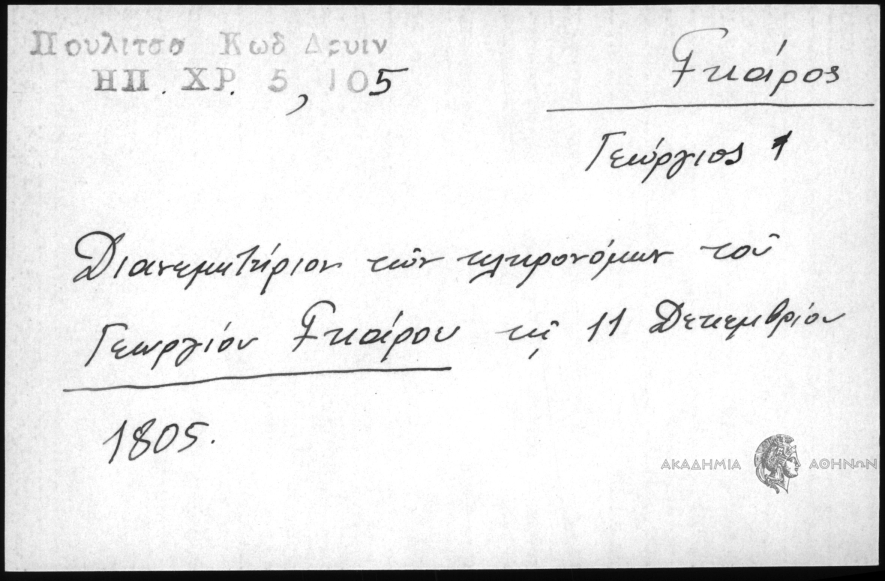 Πουλιτσα Κωδ Δρυιν
ΗΠ. ΧΡ. 5, 105
Γκάρος
Γεώργιος 1
Διανεμητήριον τῶν κληρονόμων τοῦ
Γεωργίου Γκάρου τῇ 11 Δεκεμβρίου
1805.
ΑΚΑΔΗΜΙΑ ΑΘΗΝΩΝ